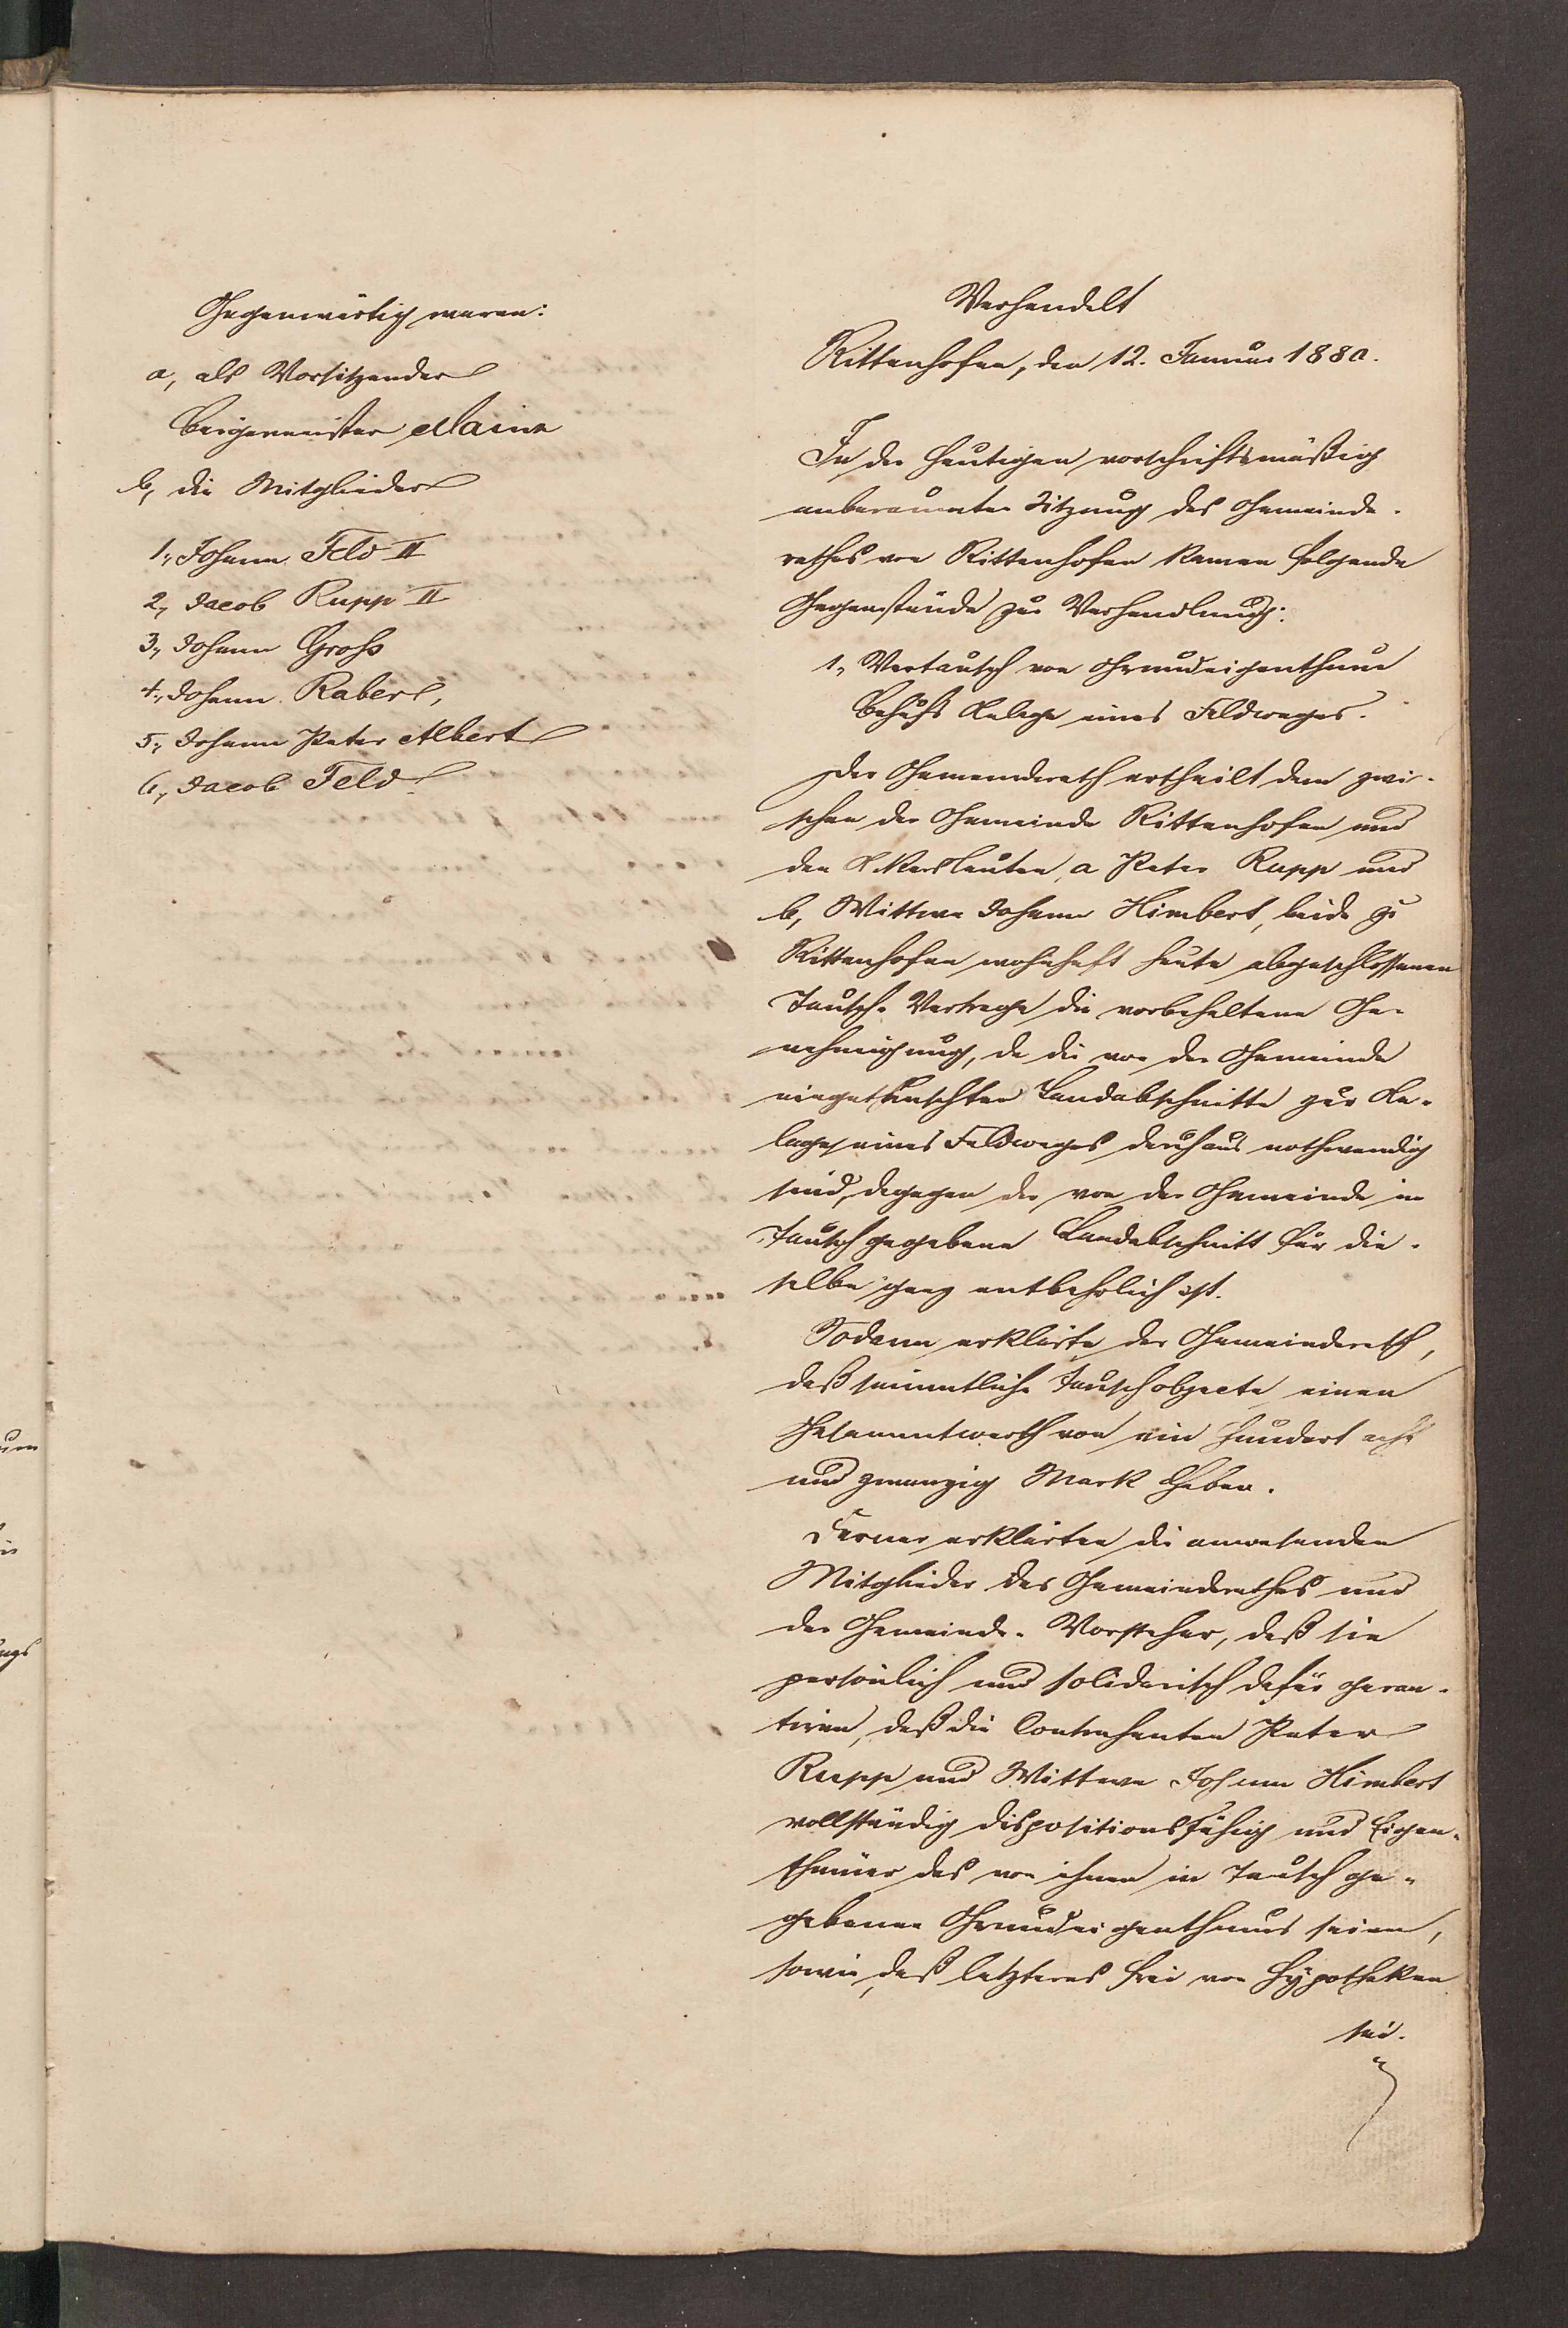 Gegenwärtig waren:
a, als Vorsitzender
Bürgermeister Maina
b, die Mitglieder
1., Johann Feld II
2., Jacob Rupp II
3., Johann Groß
4., Johann Raber,
5., Johann Peter Albert
6., Jacob Feld.
Verhandelt
Rittenhofen, den 12. Januar 1880.
In der heutigen vorschriftsmäßig
anberaumten Sitzung des Gemeinde-
rathes von Rittenhofen kamen folgende
Gegenstände zur Verhandlung:
1., Vertausch von Grundeigenthum
Behufs Anlage eines Feldweges.
Der Gemeinderath ertheilt dem zwi-
schen der Gemeinde Rittenhofen und
den Ackersleuten, a Peter Rupp und
b, Wittwe Johann Himbert, beide zu
Rittenhofen wohnhaft heute abgeschlossenen
Tausch-Vertrage die vorbehaltene Ge-
nehmigung, da die von der Gemeinde
eingetauschten Landabschnitte zur An-
lage eines Feldweges durchaus nothwendig
sind, dagegen der von der Gemeinde in
Tausch gegebene Landabschnitt für die-
selbe ganz entbehrlich ist.
Sodann erklärte der Gemeinderath,
daß sämmtliche Tauschobjecte einen
Gesammtwerth von ein hundert acht
und zwanzig Mark haben.
Ferner erklärten die anwesenden
Mitglieder des Gemeinderathes und
der Gemeinde-Vorsteher, daß sie
persönlich und solidarisch dafür garan-
tiren, daß die Contrahenten Peter
Rupp und Wittwe Johann Himbert
vollständig dispositionsfähig und Eigen-
thümer des von ihnen in Tausch ge-
gebenen Grundeigenthums seien,
sowie, daß letzteres frei von Hypotheken
sei.